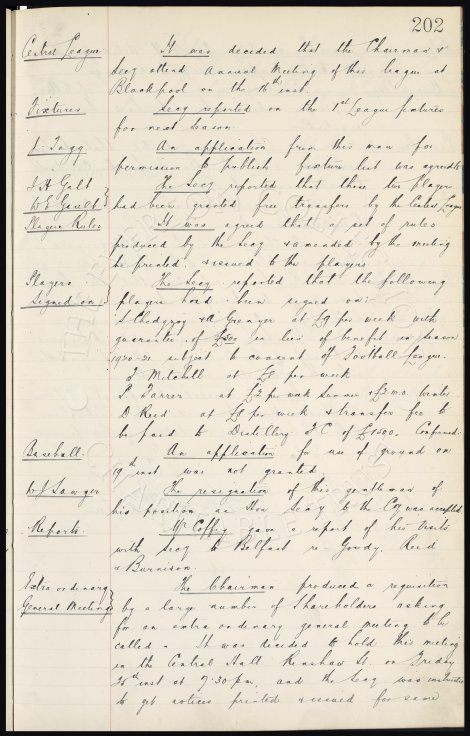 202
Central League It was decided that the Chairman &
Secy attend Annual Meeting of this league at
Blackpool on the inst.
Fixtures Secy reported on the 1st League fixtures
for next season.
J. Tagg An application from this man for
permission to publish fixture list was agreed to
J H Galt The Secy reported that these two players
W E Gault had been granted free transfers by the Central League
Players Rules It was agreed that a set of rules
produced by the Secy & amended by the meeting
be printed & issued to the players
Players The Secy reported that the following
Signed on players had been signed on:-
S Chedgzoy & A Grenyer at £9 per week with
guarantee of £500 in lieu of benefit in season
1920-21 subject to consent of Football League.
F Mitchell at £8 per week
P. Farrer at £2 per week Summer & £3.10.0 Winter
D Reid at £8 per week & transfer fee to
be paid to Distillery F C of £1500. Confirmed.
Baseball. An application for use of ground on
19th inst was not granted.
W J Sawyer The resignation of this gentleman of
his position as Hon Secy to the Coy was accepted
Reports. Mr Coffey gave a report of his visits
with Secy to Belfast re - Goudy, Reid
& Burnison.
Extra ordinary The Chairman produced a requisition
General Meeting by a large number of Shareholders asking
for an extra ordinary general meeting to be
called - It was decided to hold this meeting
in the Central Hall Renshaw St. on Friday
25th inst at 7.30 pm. and the Secy was instructed
to get notices printed & issued for same